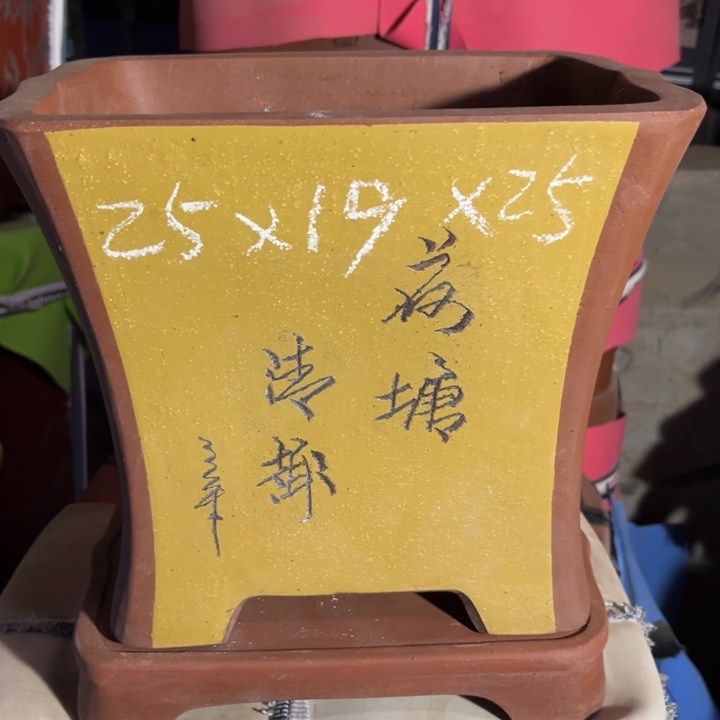 25x19x25
荷塘
清趣